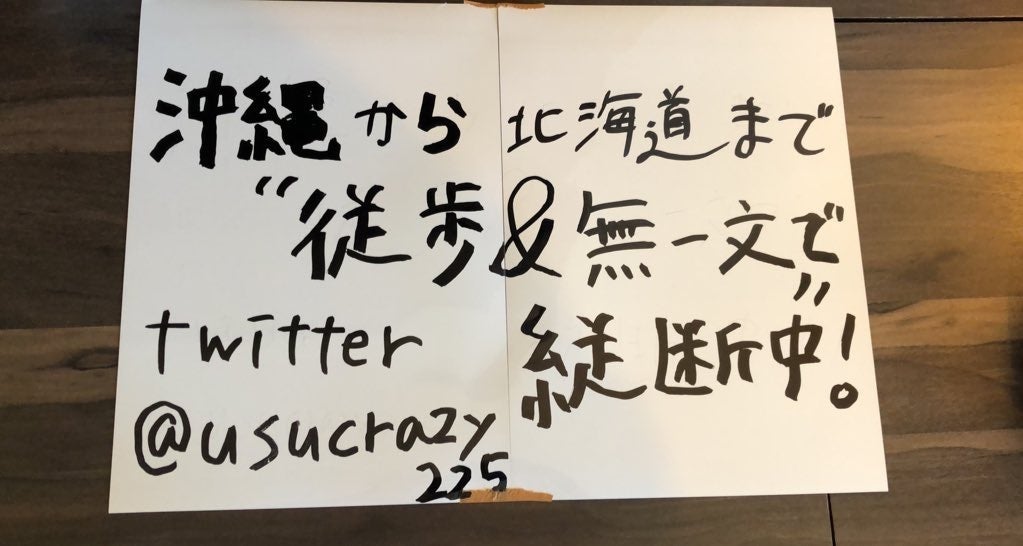 沖縄から北海道まで
"徒歩&無一文で"
縦断中!
twitter
@usucrazy
225